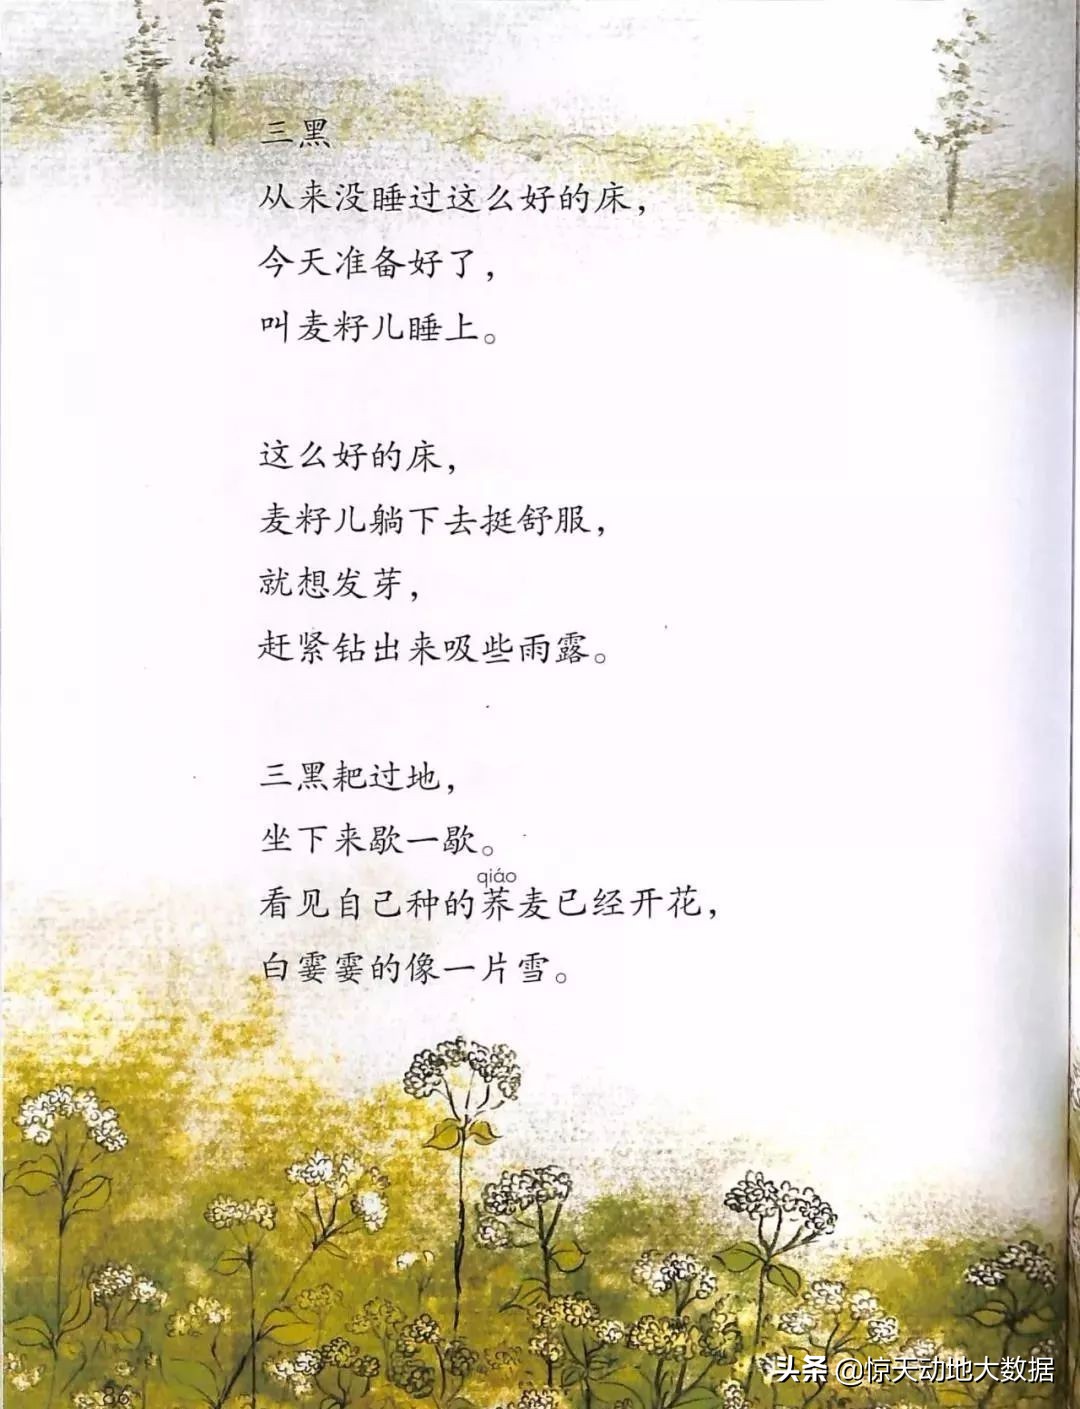 三黑
从来没睡过这么好的床，
今天准备好了，
叫麦籽儿睡上。
这么好的床，
麦籽儿躺下去挺舒服，
就想发芽，
赶紧钻出来吸些雨露。
三黑耙过地，
坐下来歇一歇。
qiáo
看见自己种的荞麦已经开花，
白霎霎的像一片雪。
86
头条 @惊天动地大数据